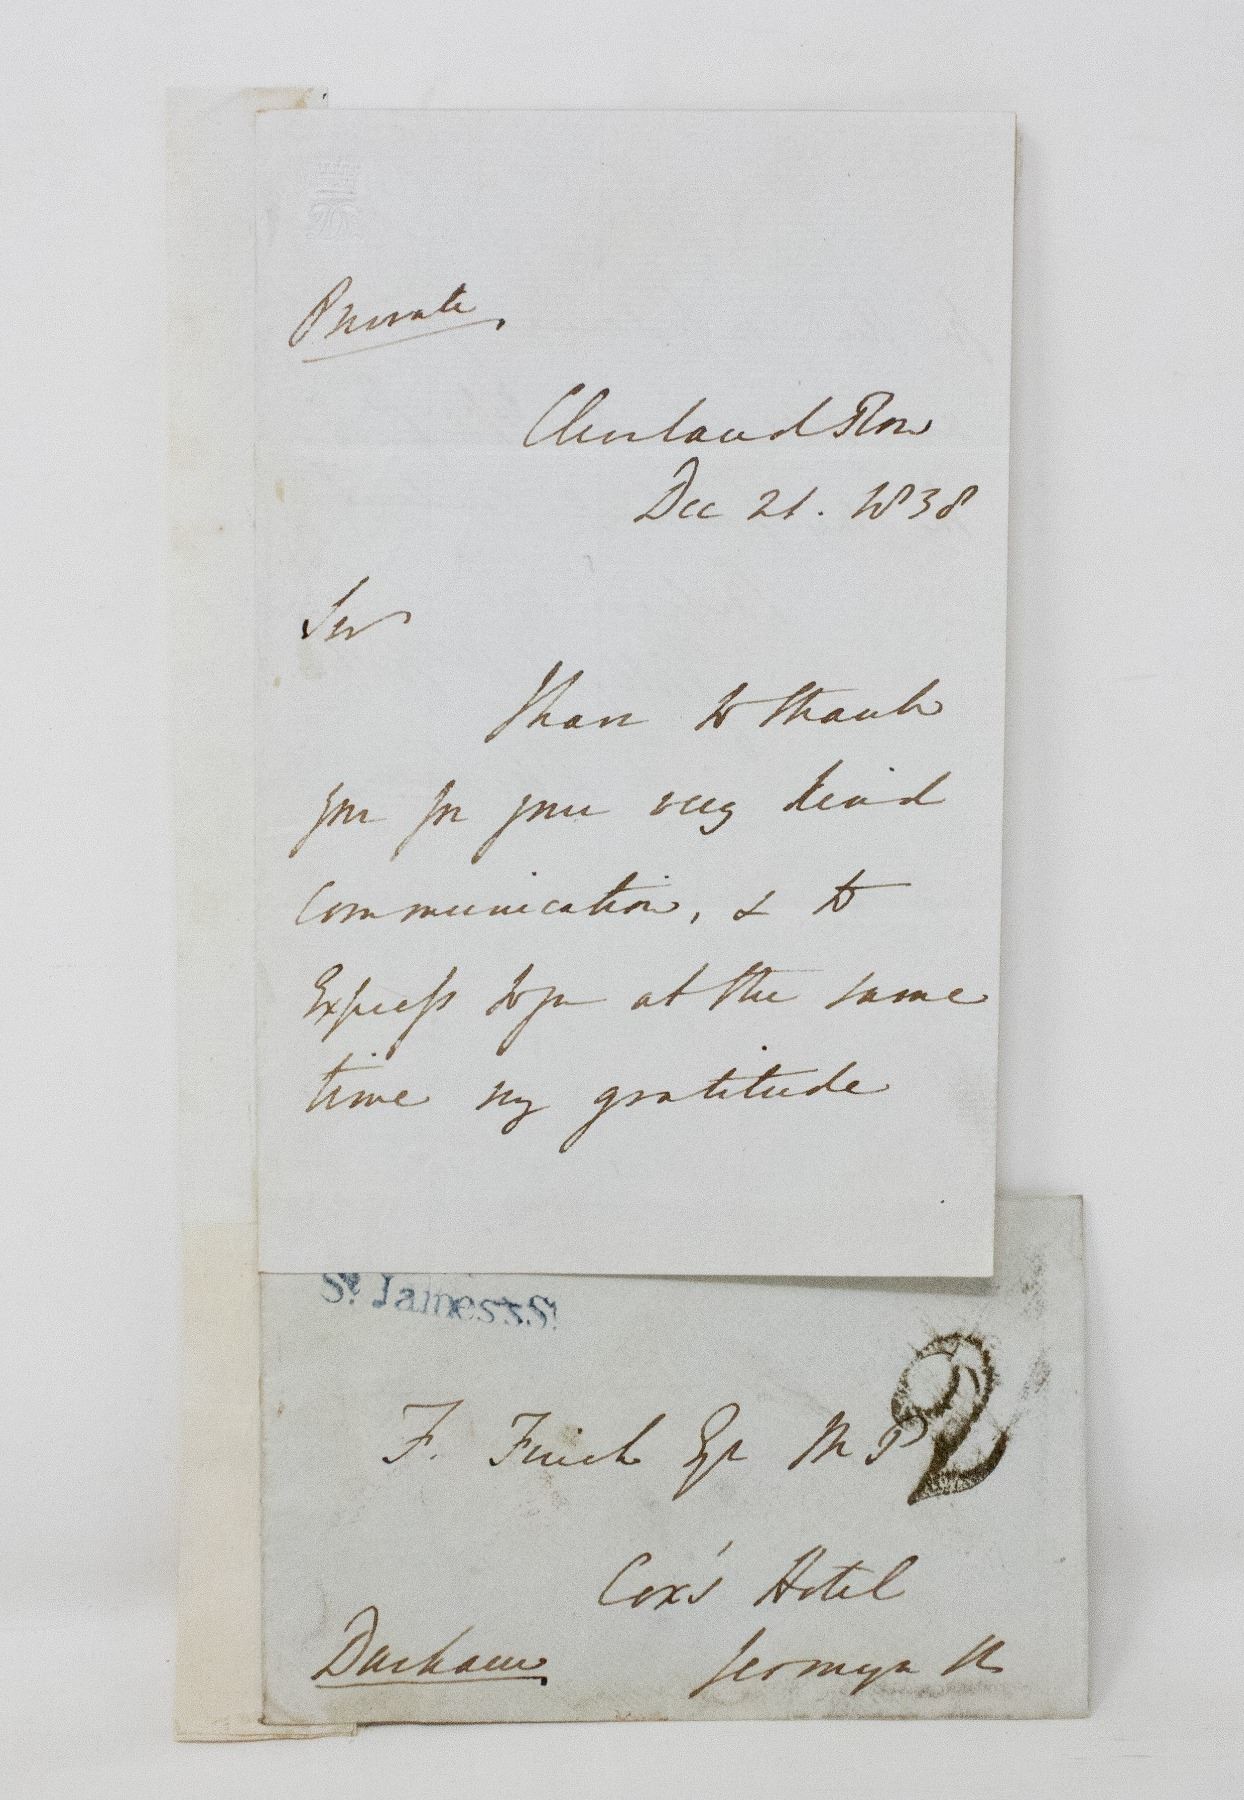 Private.
Cleveland Row
Dec 21. 1838
Sir
I have to thank
you for your very kind
communication, & to
Express to you at the same
time my gratitude
St. James's St
F. Finch Esqr M P
2
Cox's Hotel
Durham. Jermyn St